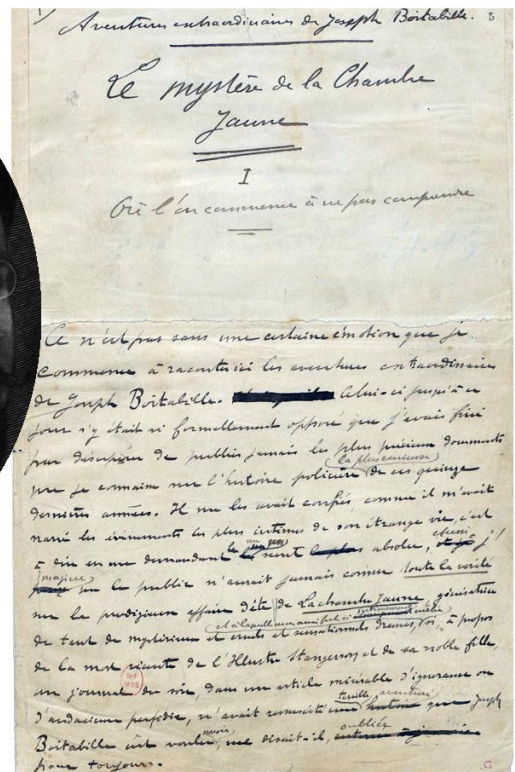 Aventures extraordinaires de Joseph Boitabille. 5
Le mystère de la Chambre
Jaune
I
Où l'on commence à ne pas comprendre
Ce n'est pas sans une certaine émotion que je
commence à raconter ici les aventures extraordinaires
de Joseph Boitabille. Celui-ci jusqu'à ce
jour s'y était si formellement opposé que j'avais fini
par désespérer de publier jamais les plus précieux documents
la plus curieuse
que je connaisse sur l'histoire policière de ces quinze
dernières années. Il me les avait confiés, comme il m'avait
narré les événements les plus intimes de son étrange vie, c'est
à dire en me demandant le secret absolu, et j'
imagine que le public n'aurait jamais connu toute la vérité
sur la prodigieuse affaire dite de La chambre Jaune, génératrice
de tant de mystérieux et cruels et sensationnels drames, si, à propos
de la mort récente de l'Illustre Stangerson et de sa noble fille,
un journal du soir, dans un article misérable d'ignorance ou
terrible aventure
d'audacieuse perfidie, n'avait ressuscité une que Joseph
Boitabille eût voulu savoir, me disait-il, oubliée
pour toujours.
BNF
MSS